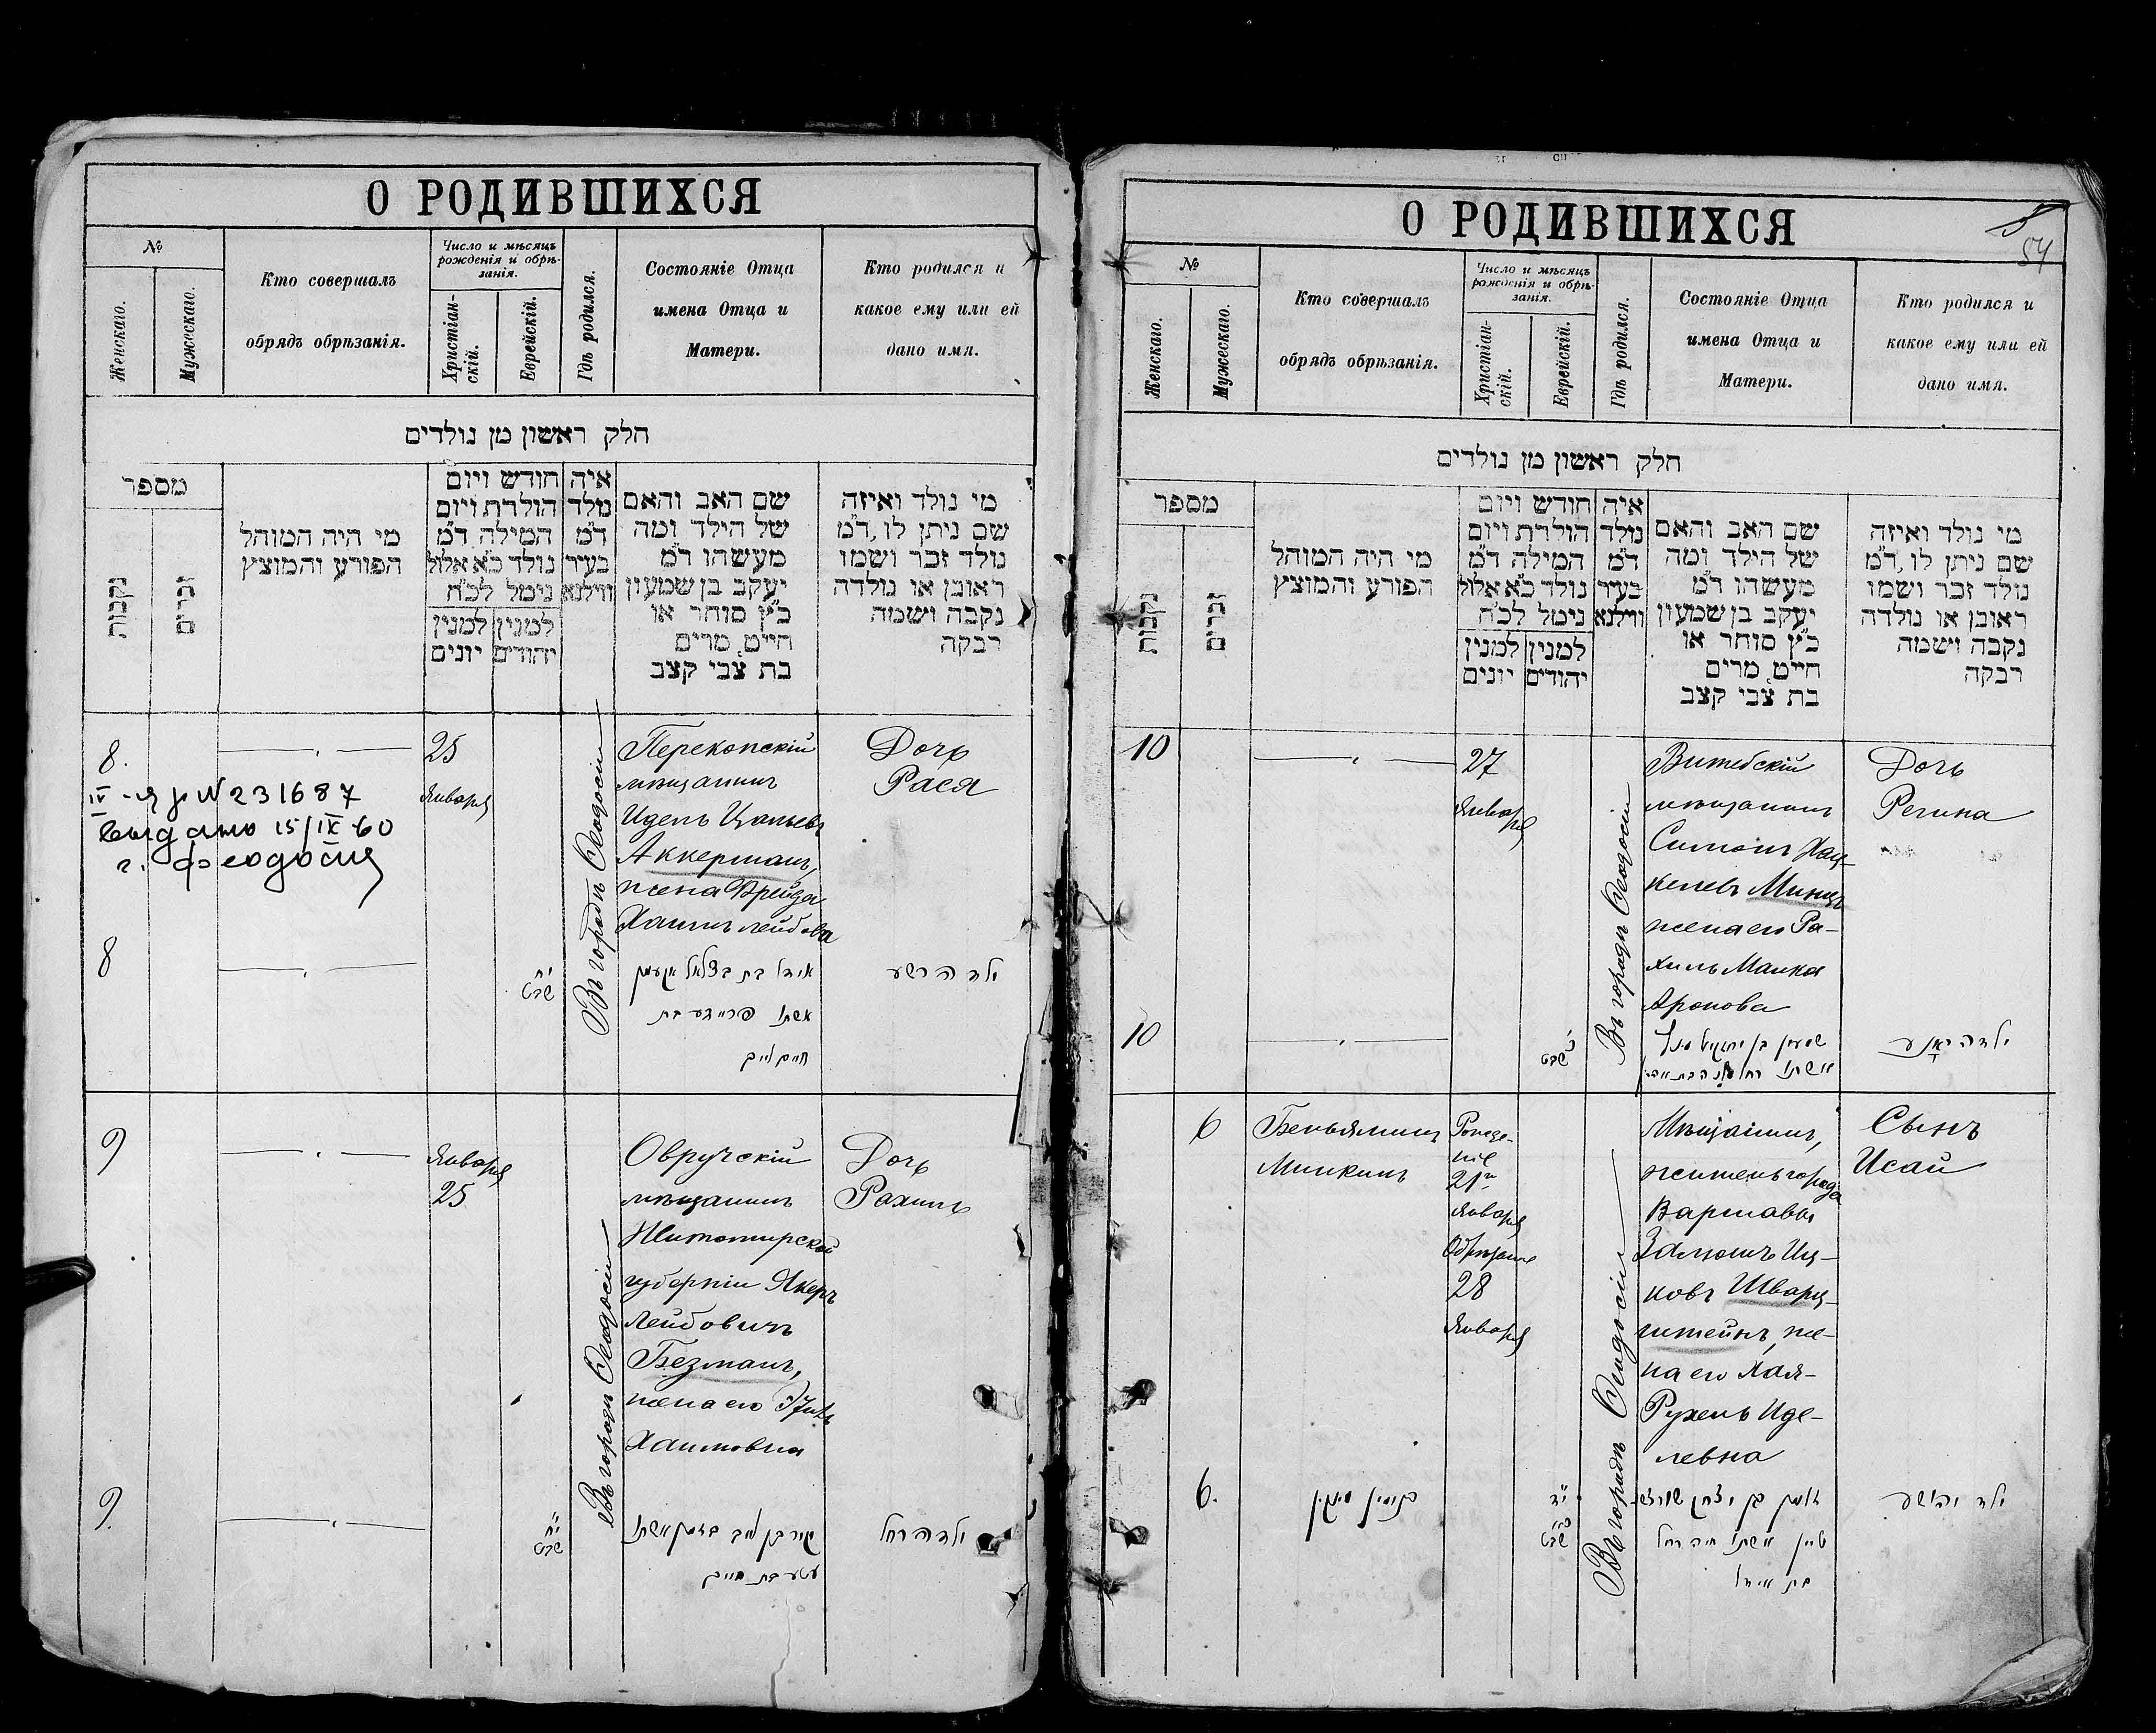 О РОДИВШИХСЯ
№
Женскаго.
Мужескаго.
Кто совершалъ
обрядъ обрѣзанія.
Число и мѣсяцъ
рожденія и обрѣ-
занія.
Христіан-
скій.
Еврейскій.
Гдѣ родился.
Состояніе Отца
имена Отца и
Матери.
Кто родился и
какое ему или ей
дано имя.
חלק ראשון מן נולדים
מספר
נקבות
זכרים
מי היה המוהל
הפורע והמוצץ
חודש ויום
הולדת ויום
המילה ד״מ
נולד כ״א אלול
נימל לכ״ח
למנין
יהודים
למנין
יונים
איה
נולד
ד״מ
בעיר
ווילנא
שם האב והאם
של הילד ומה
מעשהו ד״מ
יעקב בן שמעון
כ״ץ סוחר או
חייט, מרים
בת צבי קצב
מי נולד ואיזה
שם ניתן לו, ד״מ
נולד זכר ושמו
ראובן או נולדה
נקבה ושמה
רבקה
8.
25
Января
Въ городѣ Ѳеодосіи
Перекопскій
мѣщанинъ
Идель Цальевъ
Аккерманъ,
жена Фрейда
Хаимъ Лейбова
Дочь
Рася
№ 231687
выдано 15/IX 60
г. Феодосия
8
י״ח
שבט
אידל בת בצלאל אקערמן
אשתו פריידע בת
חיים לייב
9
Января
25
Въ городѣ Ѳеодосіи
Овручскій
мѣщанинъ
Житомирской
губерніи
Лейбовичъ
Безманъ,
жена его
Хаимовна
Дочь
Рахиль
9.
י״ח
שבט
בן לייב בזמן אשתו
בת חיים
ילדה רחל
О РОДИВШИХСЯ
5
54
№
Женскаго.
Мужескаго.
Кто совершалъ
обрядъ обрѣзанія.
Число и мѣсяцъ
рожденія и обрѣ-
занія.
Христіан-
скій.
Еврейскій.
Гдѣ родился.
Состояніе Отца
имена Отца и
Матери.
Кто родился и
какое ему или ей
дано имя.
חלק ראשון מן נולדים
מספר
נקבות
זכרים
מי היה המוהל
הפורע והמוצץ
חודש ויום
הולדת ויום
המילה ד״מ
נולד כ״א אלול
נימל לכ״ח
למנין
יהודים
למנין
יונים
איה
נולד
ד״מ
בעיר
ווילנא
שם האב והאם
של הילד ומה
מעשהו ד״מ
יעקב בן שמעון
כ״ץ סוחר או
חייט, מרים
בת צבי קצב
מי נולד ואיזה
שם ניתן לו, ד״מ
נולד זכר ושמו
ראובן או נולדה
נקבה ושמה
רבקה
10
27
Января
Въ городѣ Ѳеодосіи
Витебскій
мѣщанинъ
Симонъ Хац-
келевъ Минцъ
жена его Ра-
хиль Манка
Аронова
Дочь
Регина
10
כ׳
שבט
שמעון בן יחזקאל מינץ
אשתו רחל
ילדה
6
Беньяминъ
Минкинъ
Рожде-
ніе
21го
Января
Обрѣзаніе
28
Января
Въ городѣ Ѳеодосіи
Мѣщанинъ,
житель города
Варшавы
Залманъ Иц-
ковъ Шварц-
штейнъ, же-
на его Хая-
Рухель Иде-
левна
Сынъ
Исай
6.
בנימין מינקין
י״ד
כ״א
שבט
זלמן בן יצחק שווארץ-
שטיין אשתו חיה רחל
בת אידל
ילד יהושע